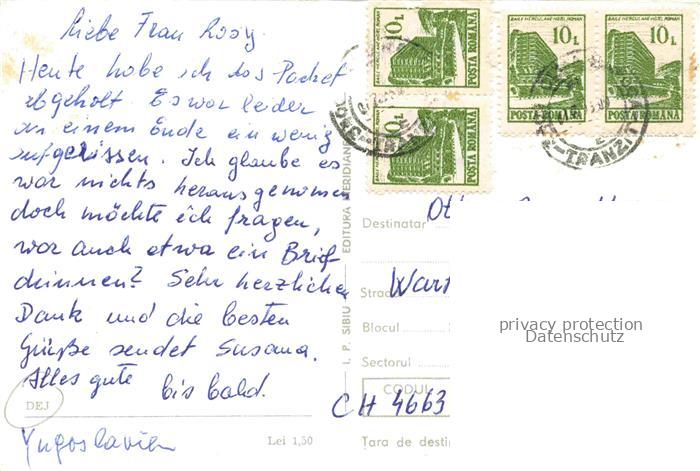 Liebe Frau Rosy.
Heute habe ich das Packet
abgeholt. Es war leider
an einem Ende ein wenig
aufgerissen. Ich glaube es
war nichts herausgenommen
doch möchte ich fragen,
war auch etwa ein Brief
drinnen? Sehr herzlichen
Dank und die besten
Grüße sendet Susana.
Alles gute bis bald.
DEJ
Yugoslavien
Lei 1,50
I. P. SIBIU EDITURA MERIDIANE
BAILE HERCULANE HOTEL ROMAN
10 L
POSTA ROMANA
BAILE HERCULANE HOTEL ROMAN
10 L
POSTA ROMANA
BAILE HERCULANE HOTEL ROMAN
10 L
POSTA ROMANA
BAILE HERCULANE HOTEL ROMAN
10 L
POSTA ROMANA
TRANZIT
Destinatar
Strad
Wart
Blocul
Sectorul
CODUL
CH 4663
Țara de desti
privacy protection
Datenschutz